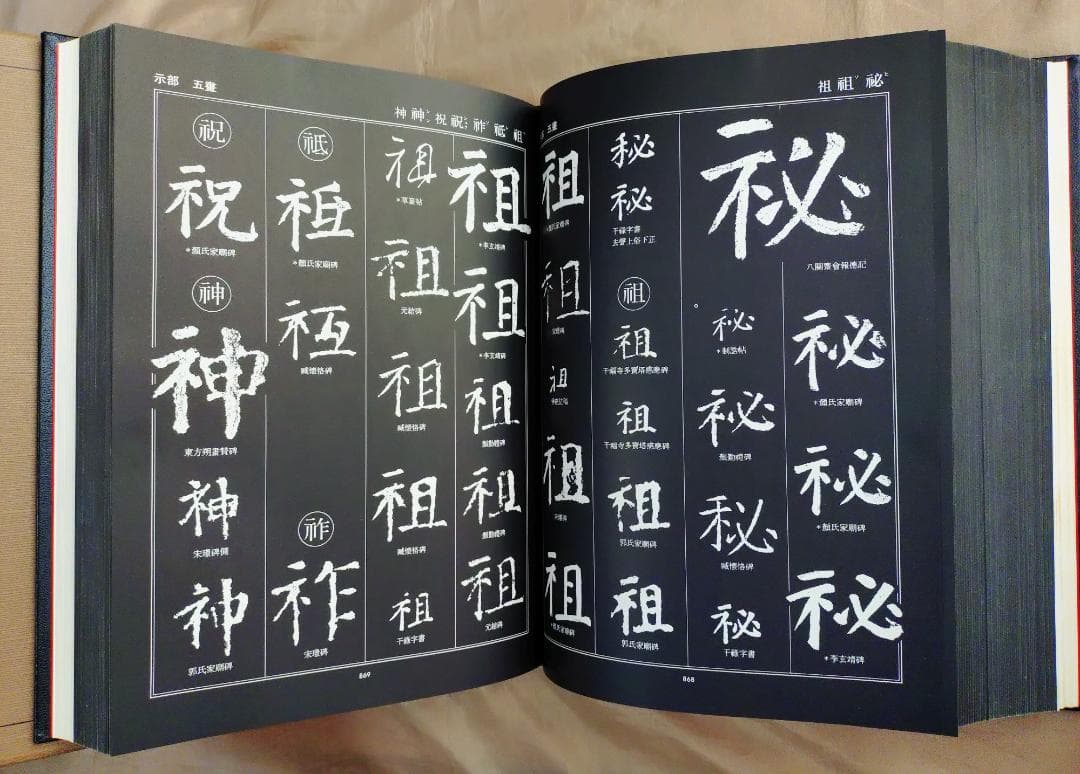 祖 祖ソ 祕ヒ
祕
八關齋會報德記
祕
*顏氏家廟碑
祕
*顏氏家廟碑
祕
*李玄靖碑
祕
祕
顏勤禮碑
秘
臧懷恪碑
祕
干祿字書
秘
祕
干祿字書
去聲上俗下正
祖
祖
千福寺多寶塔感應碑
祖
千福寺多寶塔感應碑
祖
郭氏家廟碑
祖
郭氏家廟碑
五畫
祖
*顏氏家廟碑
祖
祖
祖
宋璟碑
祖
*顏氏家廟碑
868
示部 五畫
神 神 祝 祝 祚 祗 祖
祖
*李玄靖碑
祖
*李玄靖碑
祖
顏勤禮碑
祖
顏勤禮碑
祖
元結碑
祖
*草篆帖
祖
元結碑
祖
臧懷恪碑
祖
臧懷恪碑
祖
干祿字書
祗
祗
*顏氏家廟碑
臧懷恪碑
祚
祚
宋璟碑
祝
祝
*顏氏家廟碑
神
神
東方朔畫贊碑
神
宋璟碑側
神
郭氏家廟碑
869